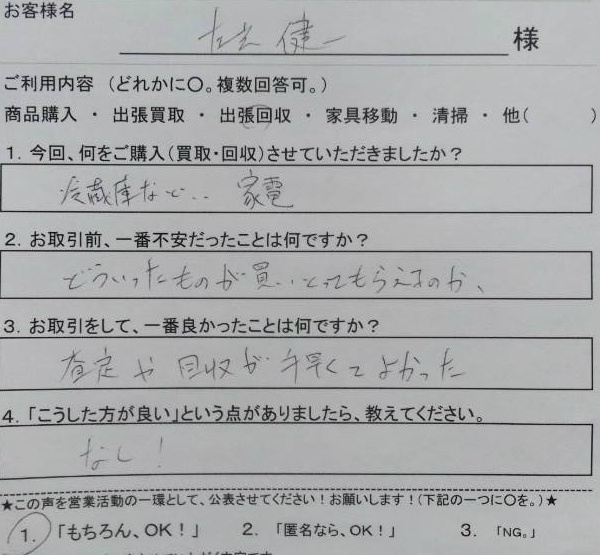 お客様名
健一 様
ご利用内容 (どれかに〇。複数回答可。)
商品購入 ・ 出張買取 ・ 出張回収 ・ 家具移動 ・ 清掃 ・ 他( )
1. 今回、何をご購入(買取・回収)させていただきましたか?
冷蔵庫など.. 家電
2. お取引前、一番不安だったことは何ですか?
どういったものが買いとってもらえるのか、
3. お取引をして、一番良かったことは何ですか?
査定や回収が手早くてよかった
4. 「こうした方が良い」という点がありましたら、教えてください。
なし!
★この声を営業活動の一環として、公表させてください!お願いします!(下記の一つに〇を。)★
1. 「もちろん、OK!」 2. 「匿名なら、OK!」 3. 「NG。」